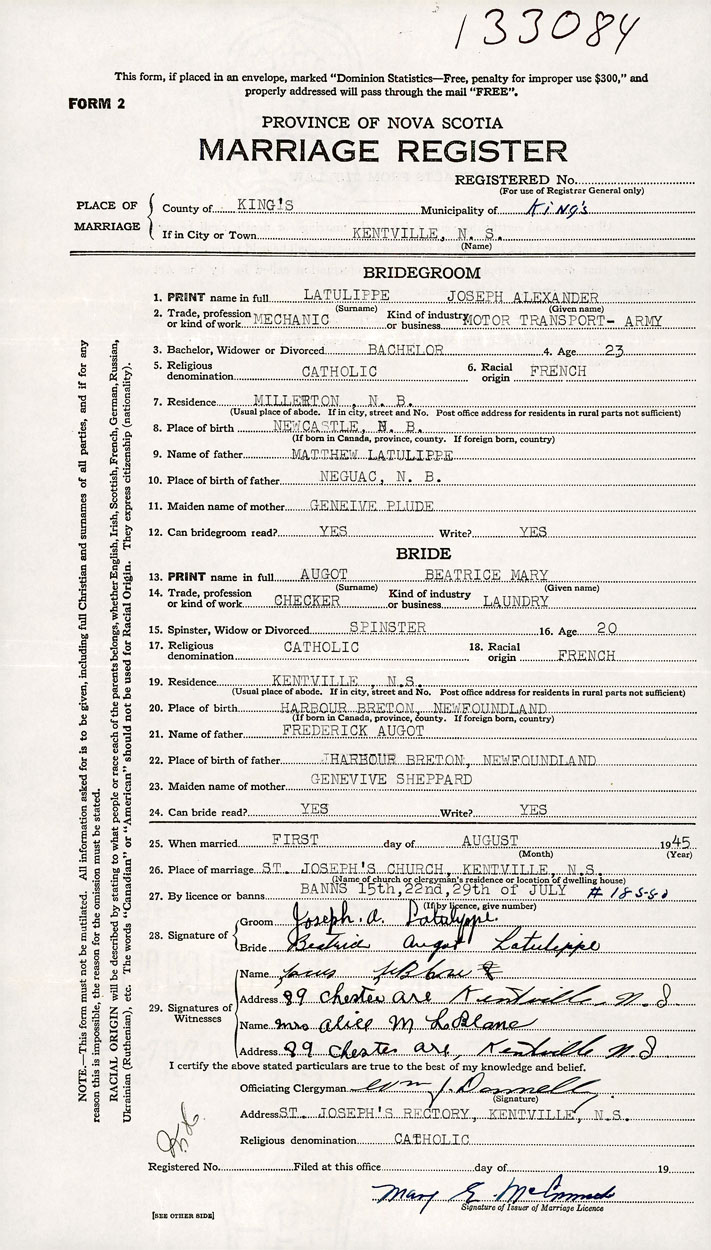 133084
This form, if placed in an envelope, marked "Dominion Statistics—Free, penalty for improper use $300," and
properly addressed will pass through the mail "FREE".
FORM 2
PROVINCE OF NOVA SCOTIA
MARRIAGE REGISTER
REGISTERED No.
(For use of Registrar General only)
PLACE OF MARRIAGE
County of KING'S Municipality of King's
If in City or Town KENTVILLE, N. S.
(Name)
BRIDEGROOM
1. PRINT name in full LATULIPPE JOSEPH ALEXANDER
(Surname) (Given name)
2. Trade, profession or kind of work MECHANIC Kind of industry or business MOTOR TRANSPORT- ARMY
3. Bachelor, Widower or Divorced BACHELOR 4. Age 23
5. Religious denomination CATHOLIC 6. Racial origin FRENCH
7. Residence MILLERTON, N. B.
(Usual place of abode. If in city, street and No. Post office address for residents in rural parts not sufficient)
8. Place of birth NEWCASTLE, N. B.
(If born in Canada, province, county. If foreign born, country)
9. Name of father MATTHEW LATULIPPE
10. Place of birth of father NEGUAC, N. B.
11. Maiden name of mother GENEIVE PLUDE
12. Can bridegroom read? YES Write? YES
BRIDE
13. PRINT name in full AUGOT BEATRICE MARY
(Surname) (Given name)
14. Trade, profession or kind of work CHECKER Kind of industry or business LAUNDRY
15. Spinster, Widow or Divorced SPINSTER 16. Age 20
17. Religious denomination CATHOLIC 18. Racial origin FRENCH
19. Residence KENTVILLE, N.S.
(Usual place of abode. If in city, street and No. Post office address for residents in rural parts not sufficient)
20. Place of birth HARBOUR BRETON, NEWFOUNDLAND
(If born in Canada, province, county. If foreign born, country)
21. Name of father FREDERICK AUGOT
22. Place of birth of father HARBOUR BRETON, NEWFOUNDLAND
23. Maiden name of mother GENEVIVE SHEPPARD
24. Can bride read? YES Write? YES
25. When married FIRST day of AUGUST 1945
(Month) (Year)
26. Place of marriage ST. JOSEPH'S CHURCH, KENTVILLE, N.S.
(Name of church or clergyman's residence or location of dwelling house)
27. By licence or banns BANNS 15th,22nd,29th of JULY
(If by licence, give number)
28. Signature of
Groom Joseph. A. Latulyppe
Bride Augot Latulippe
29. Signatures of Witnesses
Name
Address 89 Chester Ave Kentville. N.S.
Name Mrs Alice M LeBlanc
Address 89 Chester Ave, Kentville N S
I certify the above stated particulars are true to the best of my knowledge and belief.
Officiating Clergyman Wm J. Donnelly
(Signature)
Address ST. JOSEPH'S RECTORY, KENTVILLE, N.S.
Religious denomination CATHOLIC
Registered No. Filed at this office day of 19
Mary E.
Signature of Issuer of Marriage Licence
[SEE OTHER SIDE]
NOTE.—This form must not be mutilated. All information asked for is to be given, including full Christian and surnames of all parties, and if for any
reason this is impossible, the reason for the omission must be stated.
RACIAL ORIGIN will be described by stating to what people or race each of the parents belongs, whether English, Irish, Scottish, French, German, Russian,
Ukrainian (Ruthenian), etc. The words "Canadian" or "American" should not be used for Racial Origin. They express citizenship (nationality).